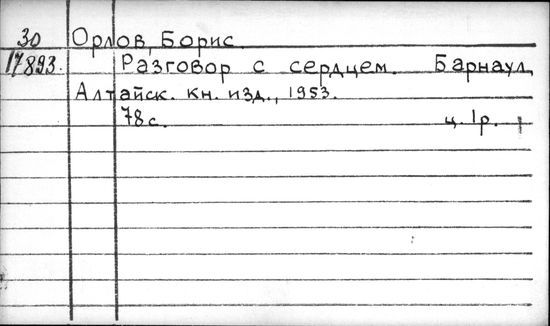 30 Орлов, Борис.
17893. Разговор с сердцем. Барнаул,
Алтайск. кн. изд., 1953.
78с. ц. 1р.